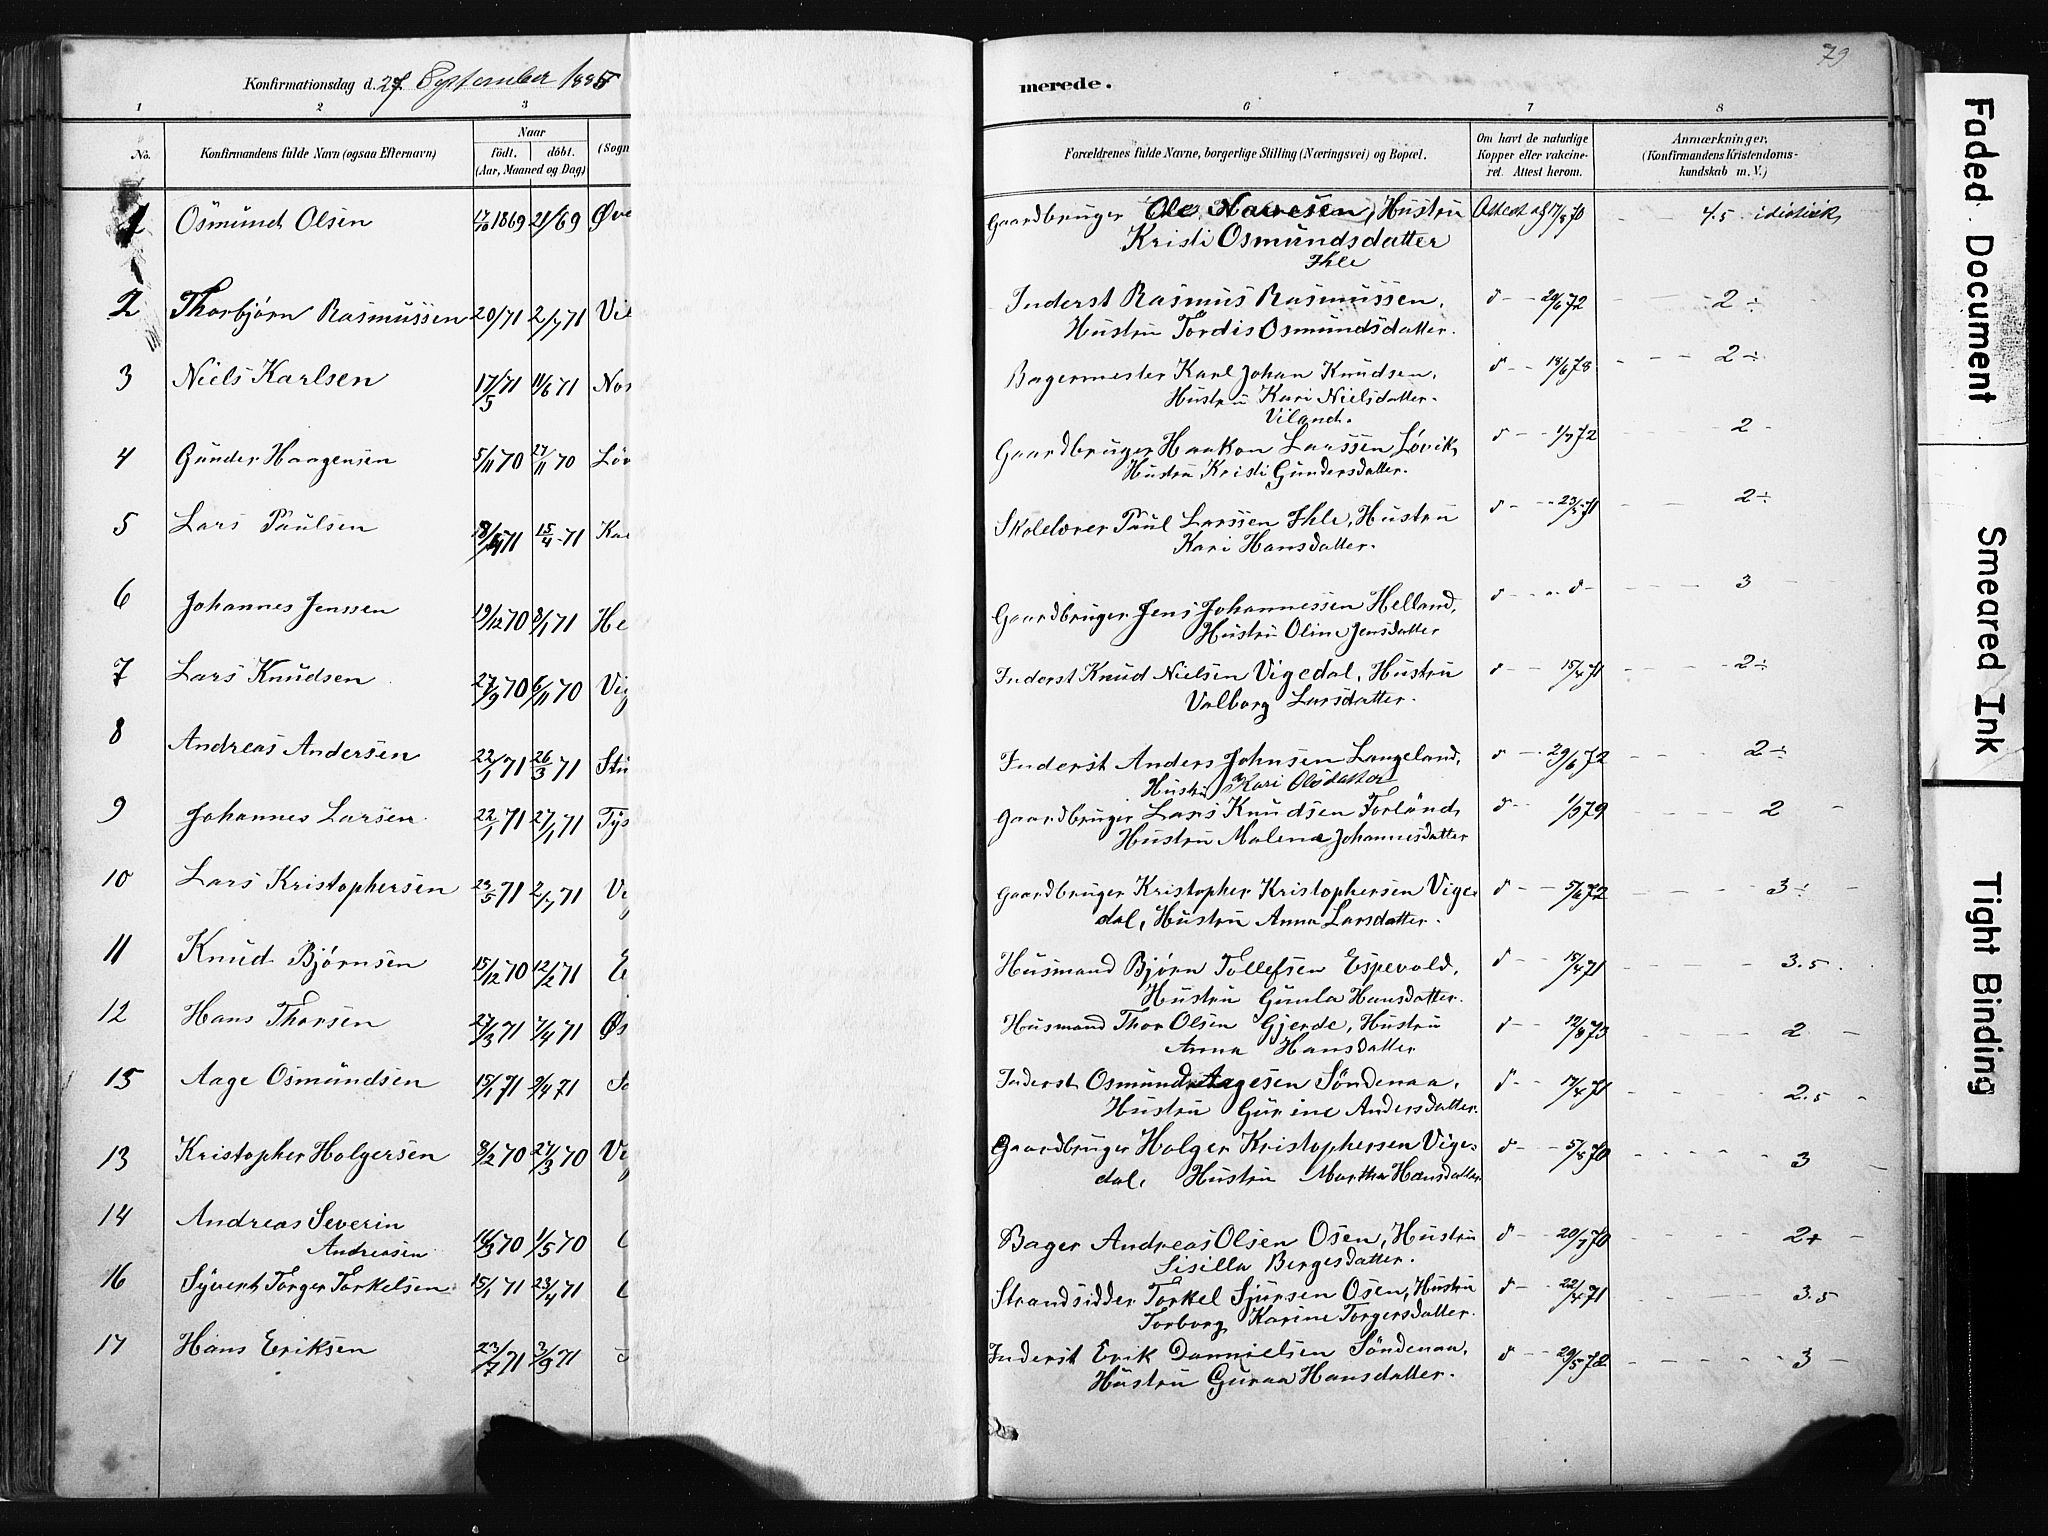 79
Konfirmationsdag d. 27 September 1885
merede.
1 2 3 6 7 8
No. Konfirmandens fulde Navn (ogsaa Efternavn) Naar født. døbt. (Aar, Maaned og Dag) (Sogn
Forældrenes fulde Navne, borgerlige Stilling (Næringsvei) og Bopæl.
Om havt de naturlige Kopper eller vakcineret. Attest herom.
Anmærkninger, (Konfirmandens Kristendomskundskab m. V.)
1 Osmund Olsen 17/10 1869 69 Øve
Gaardbruger Ole Hustru Attest af 17/8 70 4.5 idiotisk
Kristi Osmundsdatter
Ihle
2 Thorbjørn Rasmussen 20/71 2/7 71 Vil
Inderst Rasmus Rasmussen, d - - 29/6 72 - - - 2 ÷
Hustru Tordis Osmundsdatter.
3 Niels Karlsen 17/5 71 11/6 71
Bagermester Karl Johan Knudsen, d - - 18/6 78 - - - 2 ÷
Hustru Kari Nielsdatter.
Viland.
4 Gunder Haagensen 5/11 70 27/11 70 Løv
Gaardbruger Haakon Larssen Løvik, d - - 1/7 72 - - - 2 -
Hustru Kristi Gundersdatter.
5 Lars Paulsen 71 15/4 -71
Skolelærer Paul Larssen Ihle, Hustru d - - 23/5 71 - - - 2 ÷
Kari Hansdatter.
6 Johannes Jenssen 19/12 70 8/1 71 He
Gaardbruger Jens Johannessen Helland, d - - d - - - - 3 -
Hustru Oline Jensdatter
7 Lars Knudsen 27/9 70 6/11 70 Vig
Inderst Knud Nielsen Vigedal, Hustru d - - 15/4 71 - - - 2 ÷
Valborg Larsdatter.
8 Andreas Andersen 22/1 71 26/3 71 Stu
Inderst Anders Johnsen Langeland, d - - 29/6 72 - - - 2 ÷
Hustru Kari Olsdatter
9 Johannes Larsen 22/1 71 27/1 71 Tys
Gaardbruger Lars Knudsen Forland, d - - 1/9 79 - - - - 2 -
Hustru Malena Johannesdatter
10 Lars Kristophersen 29/5 71 2/7 71 Vig
Gaardbruger Kristopher Kristophersen Vige- d - - 5/6 72 - - - - 3 ÷ -
dal, Hustru Anna Larsdatter.
11 Knud Bjørnsen 15/12 70 12/2 71 E
Husmand Bjørn Tollefsen Espevold, d - - 15/4 71 - - - - 3.5
Hustru Gunla Hansdatter.
12 Hans Thorsen 27/3 71 7/4 71 Øs
Husmand Thor Olsen Gjerde, Hustru d - - 12/8 73 - - - - 2 -
Anna Hansdatter
15 Aage Osmundsen 15/1 71 9/4 71
Inderst Osmund Aagesen Søndenaa, d - - 17/4 71 - - - - 2.5 -
Hustru Gurine Andersdatter.
13 Kristopher Holgersen 9/2 70 27/3 70 Vig
Gaardbruger Holger Kristophersen Vige- d - - 5/8 70 - - - - - 3 -
dal, Hustru Martha Hansdatter
14 Andreas Severin 70 1/5 70
Andreasen
Bager Andreas Olsen Osen, Hustru d - - 20/7 70 - - - - 2+ -
Sisilla Bergesdatter.
16 Syvert Torger Torkelsen 15/1 71 23/4 71
Strandsidder Torkel Sjursen Osen, Hustru d - - 22/4 71 - - - - 3.5
Torborg Karine Torgersdatter.
17 Hans Eriksen 23/7 71 3/9 71
Inderst Erik Dannielsen Søndenaa, d - - 29/5 72 - - - - - 3 -
Hustru Guraa Hansdatter.
Faded Document
Smeared Ink
Tight Binding